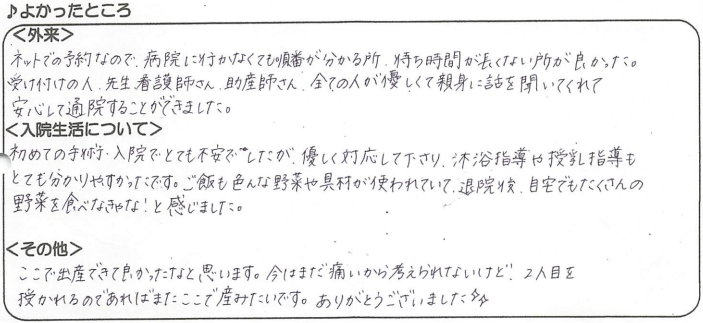 ♪よかったところ
＜外来＞
ネットでの予約なので、病院に行かなくても順番が分かる所、待ち時間が長くない所が良かった。
受け付けの人、先生、看護師さん、助産師さん、全ての人が優しくて親身に話を聞いてくれて
安心して通院することができました。
＜入院生活について＞
初めての手術・入院でとても不安でしたが、優しく対応して下さり、沐浴指導や授乳指導も
とても分かりやすかったです。ご飯も色んな野菜や具材が使われていて、退院後、自宅でもたくさんの
野菜を食べなきゃな!と感じました。
＜その他＞
ここで出産できて良かったなと思います。今はまだ痛いから考えられないけど、2人目を
授かれるのであればまたここで産みたいです。ありがとうございました☆☆